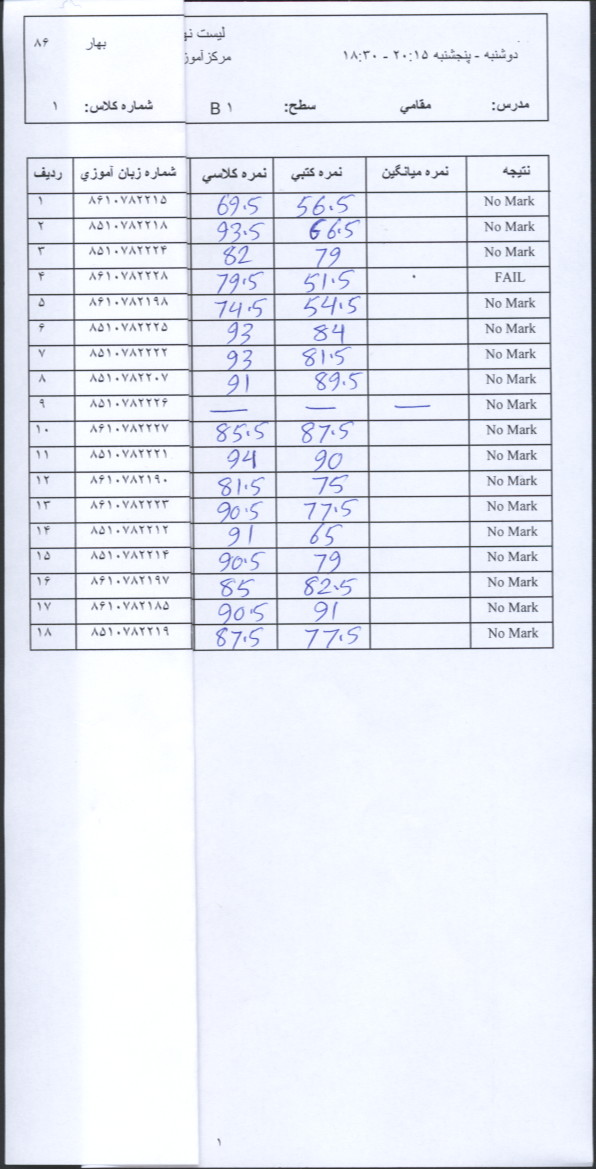 لیست نه بهار ۸۶
دوشنبه - پنجشنبه ۲۰:۱۵ - ۱۸:۳۰ مرکز آموز
مدرس: مقامي سطح: B ۱ شماره کلاس: ۱
ردیف شماره زبان آموزي نمره کلاسي نمره کتبي نمره میانگین نتیجه
۱ ۸۶۱۰۷۸۲۲۱۵ 69.5 56.5 No Mark
۲ ۸۵۱۰۷۸۲۲۱۸ 93.5 66.5 No Mark
۳ ۸۵۱۰۷۸۲۲۲۴ 82 79 No Mark
۴ ۸۶۱۰۷۸۲۲۲۸ 79.5 51.5 FAIL
۵ ۸۶۱۰۷۸۲۱۹۸ 74.5 54.5 No Mark
۶ ۸۵۱۰۷۸۲۲۲۵ 93 84 No Mark
۷ ۸۵۱۰۷۸۲۲۲۲ 93 81.5 No Mark
۸ ۸۵۱۰۷۸۲۲۰۷ 91 89.5 No Mark
۹ ۸۵۱۰۷۸۲۲۲۶ — — — No Mark
۱۰ ۸۶۱۰۷۸۲۲۲۷ 85.5 87.5 No Mark
۱۱ ۸۵۱۰۷۸۲۲۲۱ 94 90 No Mark
۱۲ ۸۶۱۰۷۸۲۱۹۰ 81.5 75 No Mark
۱۳ ۸۶۱۰۷۸۲۲۲۳ 90.5 77.5 No Mark
۱۴ ۸۵۱۰۷۸۲۲۱۲ 91 65 No Mark
۱۵ ۸۵۱۰۷۸۲۲۱۴ 90.5 79 No Mark
۱۶ ۸۶۱۰۷۸۲۱۹۷ 85 82.5 No Mark
۱۷ ۸۶۱۰۷۸۲۱۸۵ 90.5 91 No Mark
۱۸ ۸۵۱۰۷۸۲۲۱۹ 87.5 77.5 No Mark
۱